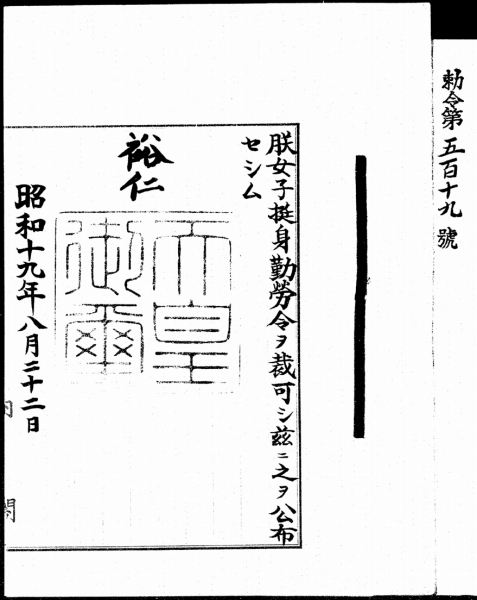 勅令第五百十九號
朕女子挺身勤勞令ヲ裁可シ茲ニ之ヲ公布
セシム
裕仁
天皇
御璽
昭和十九年八月二十二日
閣